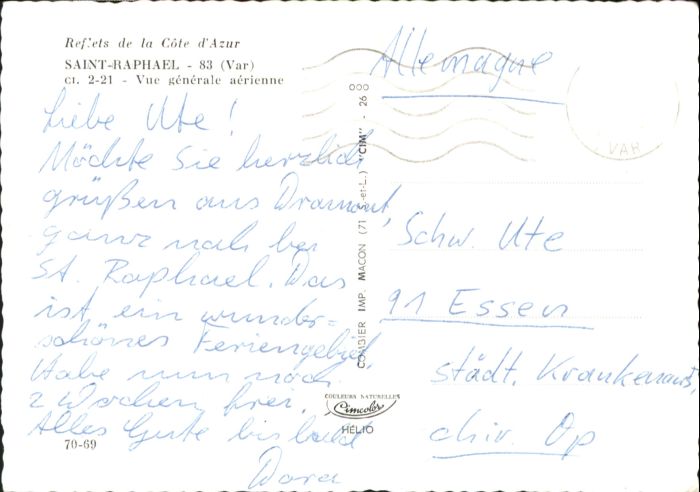 Reflets de la Côte d'Azur
SAINT-RAPHAEL - 83 (Var)
CI. 2-21 - Vue générale aérienne
Liebe Ute!
Möchte Sie herzlich
grüßen aus Dramont,
ganz nah bei
St. Raphael. Das
ist ein wunder=
schönes Feriengebiet.
Habe nun noch
2 Wochen frei.
Alles Gute bis bald
Dora
70-69
COMBIER IMP. MACON (71 S.-et-L.) "CIM" - 26 8
COULEURS NATURELLES
Cimcolor
HÉLIO
VAR
Allemagne
Schw. Ute
91 Essen
städt. Krankenanst.
chir. Op